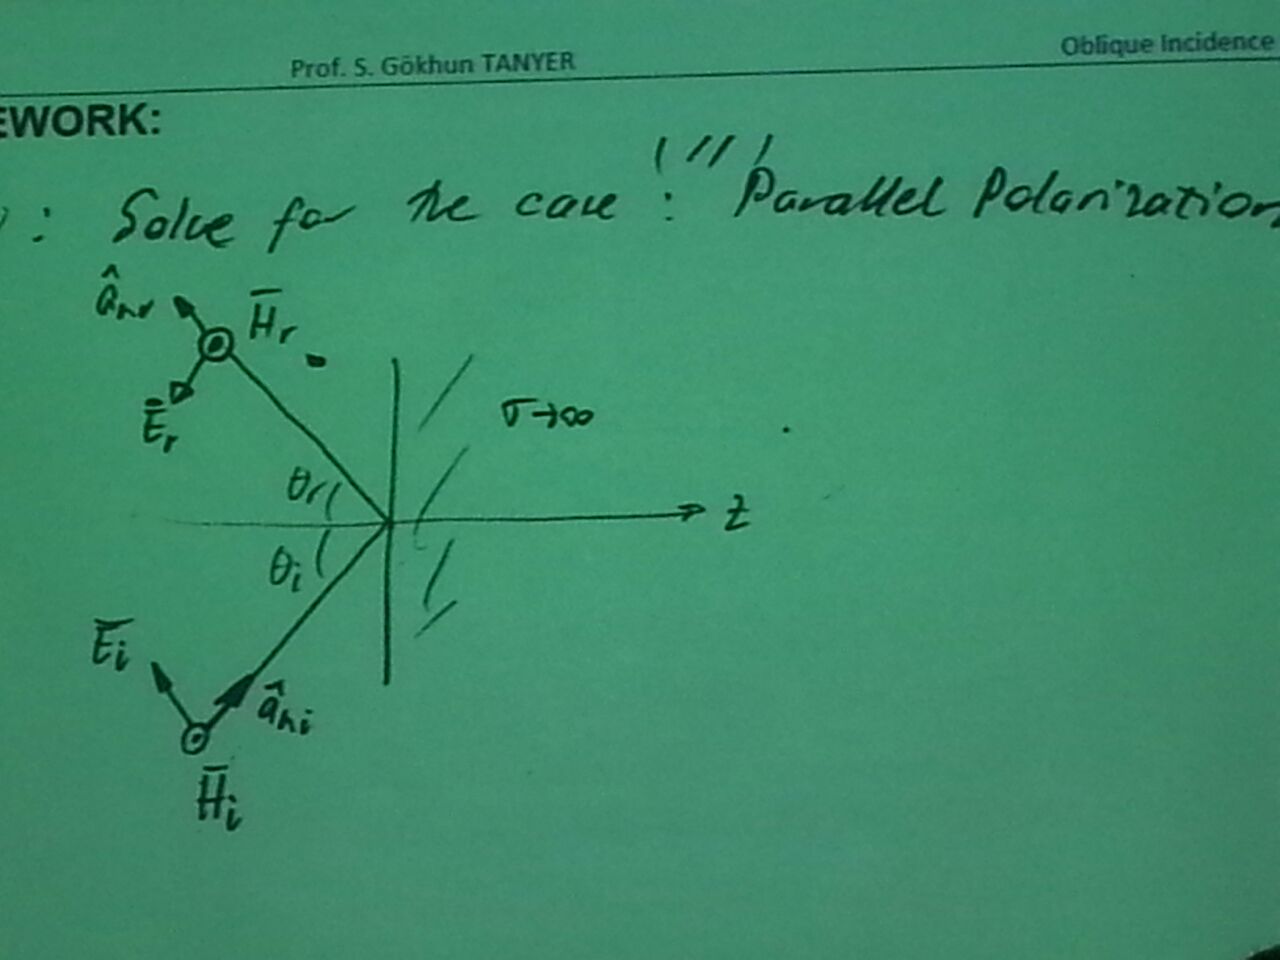 Prof. S. Gökhun TANYER
Oblique Incidence
EWORK:
: Solve for the case : "//" Parallel Polarization
â_nr
H̄_r
Ē_r
σ→∞
θ_r
z
θ_i
Ē_i
â_ni
H̄_i